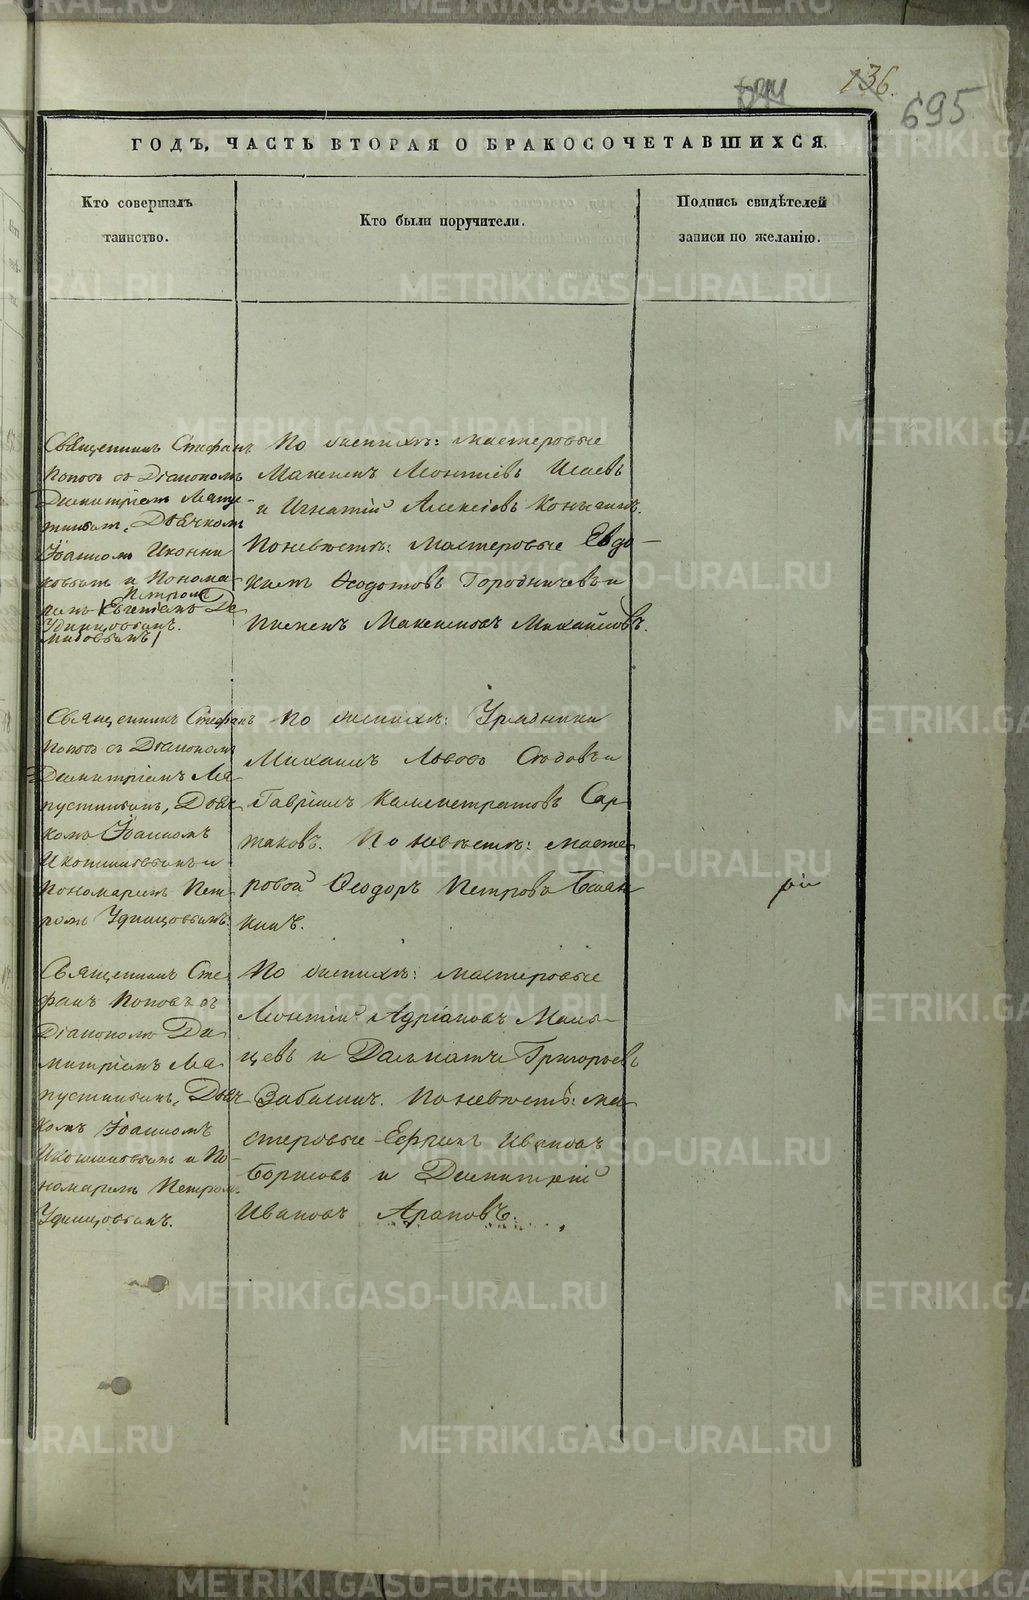 136.
694
695
ГОДЪ, ЧАСТЬ ВТОРАЯ О БРАКОСОЧЕТАВШИХСЯ.
Кто совершалъ
таинство.
Кто были поручители.
Подпись свидѣтелей
записи по желанію.
Священникъ Стефанъ
Поповъ съ Діакономъ
Димитріемъ Лапу-
Дьячкомъ
Іоанномъ Иконни
ковымъ и Понома-
Петромъ
ремъ Евгеніемъ Де
Удинцовымъ.
мидовымъ
По женихѣ: мастеровые
Максимъ Леонтіевъ Исаевъ
и Игнатій Алексіевъ
По невѣстѣ: Мастеровые Евдо-
кимъ Ѳеодотовъ Городничевъ и
Пименъ Максимовъ Михайловъ.
Священникъ Стефанъ
Поповъ съ Діакономъ
Димитріемъ Ла-
пустинымъ, Дьяч-
комъ Іоанномъ
Иконниковымъ и
Пономаремъ Пет-
ромъ Удинцовымъ.
По женихѣ: Урядники
Михаилъ Львовъ и
Гавріилъ Калистратовъ Сар-
таковъ. По невѣстѣ: масте-
ровой Ѳеодоръ Петровъ
кинъ.
Священникъ Сте-
фанъ Поповъ съ
Діакономъ Ди-
митріемъ Ла-
пустинымъ, Дьяч-
комъ Іоанномъ
Иконниковымъ и По-
номаремъ Петромъ
Удинцовымъ.
По женихѣ: мастеровые
Леонтій Адріановъ Маль-
цевъ и Далматъ Григорьевъ
Забалинъ. По невѣстѣ: ма-
стеровые Ефримъ Ивановъ
Борисовъ и Димитрій
Ивановъ Араповъ.
METRIKI.GASO-URAL.RU